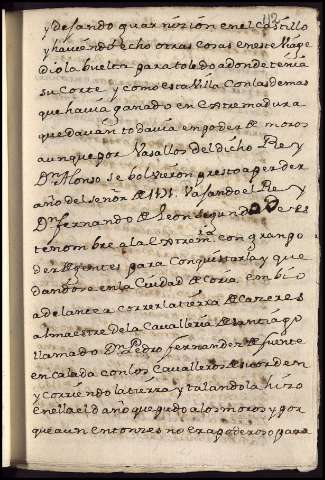 y dejando guarnizion en el Castillo
y haviendo echo otras Cosas en este Viage
dio la buelta para toledo adonde tenia
su Corte y como esta Villa Con las demas
que havia ganado en Extremadura
quedavan todavia en poder de moros
aunque por Vasallos del dicho Rey
Dn Alonso se bolvieron presto a perder
año del señor de 1171. Vajando el Rey
Dn fernando de Leon segundo de es
te nombre a la Extrem.ra con gran po
der de gentes para Conquistarla y que
dandose en la Ciudad de Coria, embio
adelante a correr la tierra de Cazeres
al maestre de la Cavalleria de santiago
llamado Dn Pedro fernandez de fuente
encalada con los Cavalleros de su orden
y corriendo la tierra y talandola hizo
en ella el daño que pudo a los moros y por
que aun entonzes no era poderoso para